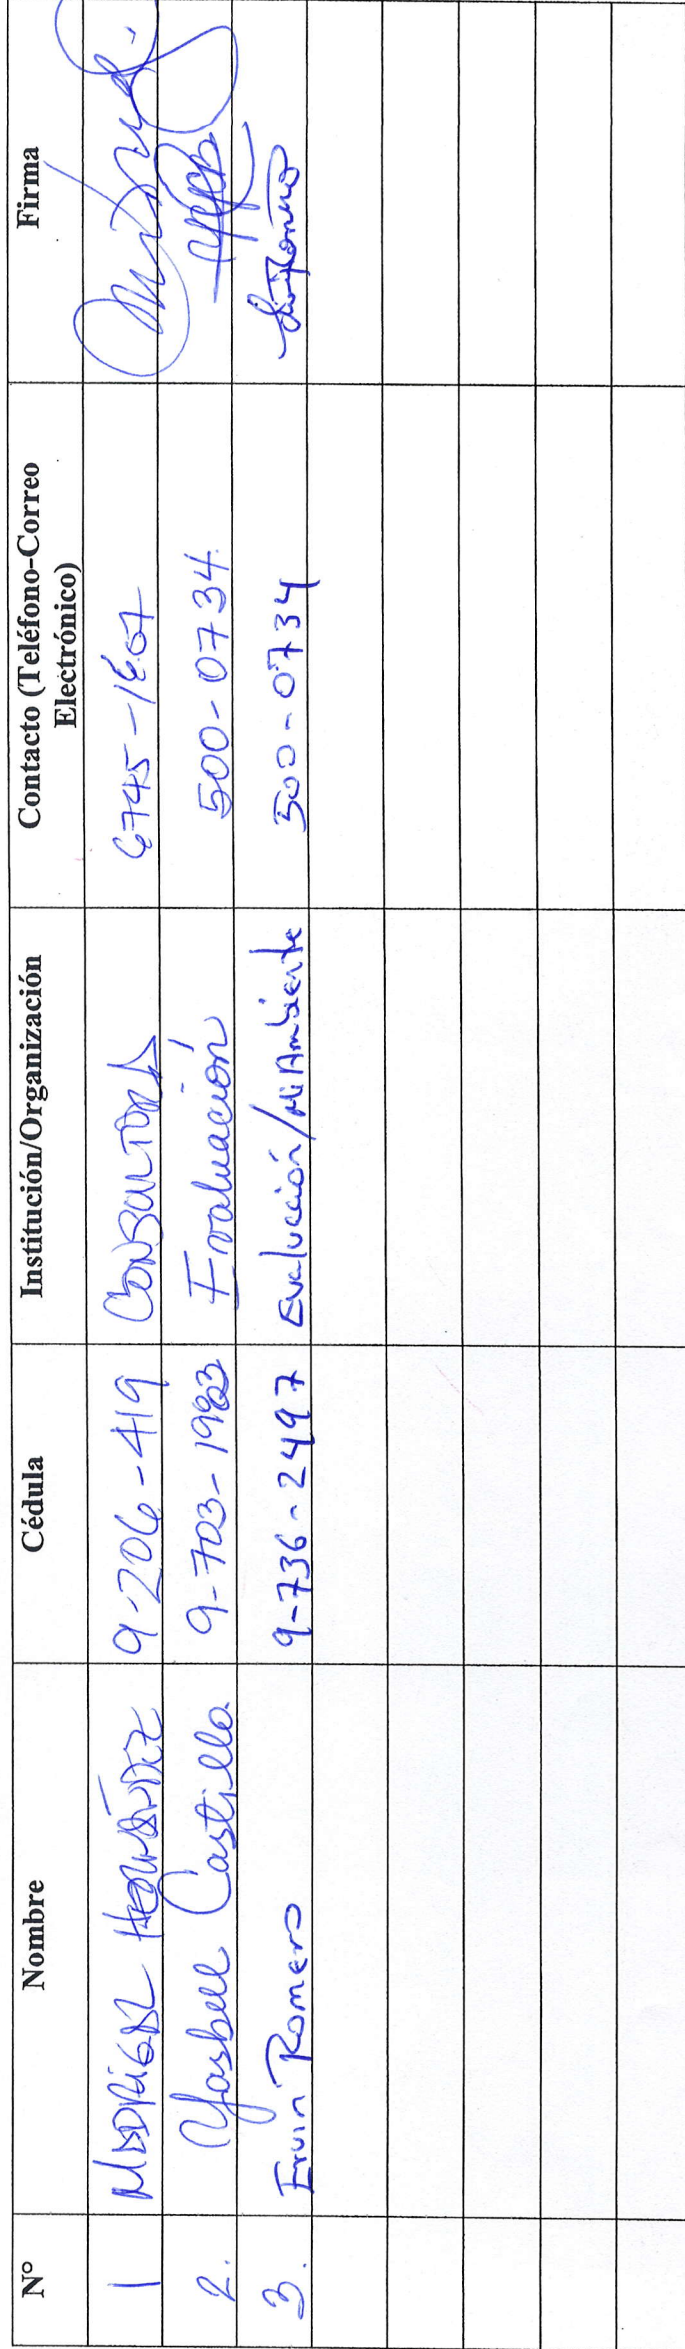 N° Nombre Cédula Institución/Organización Contacto (Teléfono-Correo Electrónico) Firma
1 MADRIGAL HERNÁNDEZ 9-206-419 CONSULTORA 6745-1807
2. Yasbell Castillo 9-703-1983 Evaluación 500-0734
3. Ervin Romero 9-736-2497 Evaluación/MiAmbiente 500-0734